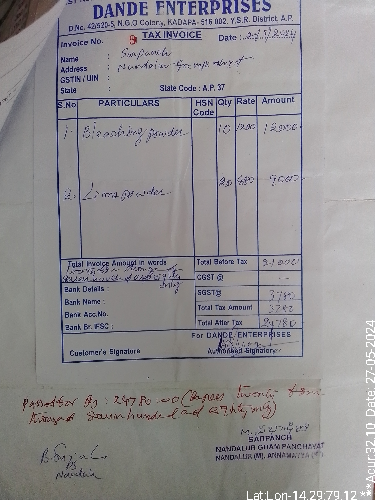 DANDE ENTERPRISES
D.No. 42/520-5, N.G.O Colony, KADAPA - 516 002, Y.S.R. District, A.P.
TAX INVOICE
Invoice No. Date :
Name : Sarpanch
Address : Nandalur
GSTIN / UIN :
State : State Code : A.P. 37
S.No PARTICULARS HSN Code Qty Rate Amount
1. Bleaching powder 10 1200 12000
2. Lime powder 20 9000
Total Invoice Amount in words
Total Before Tax 21000
CGST @
Bank Details : SGST@ 3780
Bank Name : Total Tax Amount 3780
Bank Acc.No. Total After Tax 24780
Bank Br. IFSC : For DANDE ENTERPRISES
Customer's Signature Authorised Signature
Passed for Rs : 24780 =00 (Rupees twenty four
thousand seven hundred and eighty only)
SARPANCH
NANDALUR GRAM PANCHAYAT
NANDALUR (M), ANNAMAYYA
Nandalur
Lat:Lon-14.29:79.12 **Acur:32.10 Date: 27-05-2024